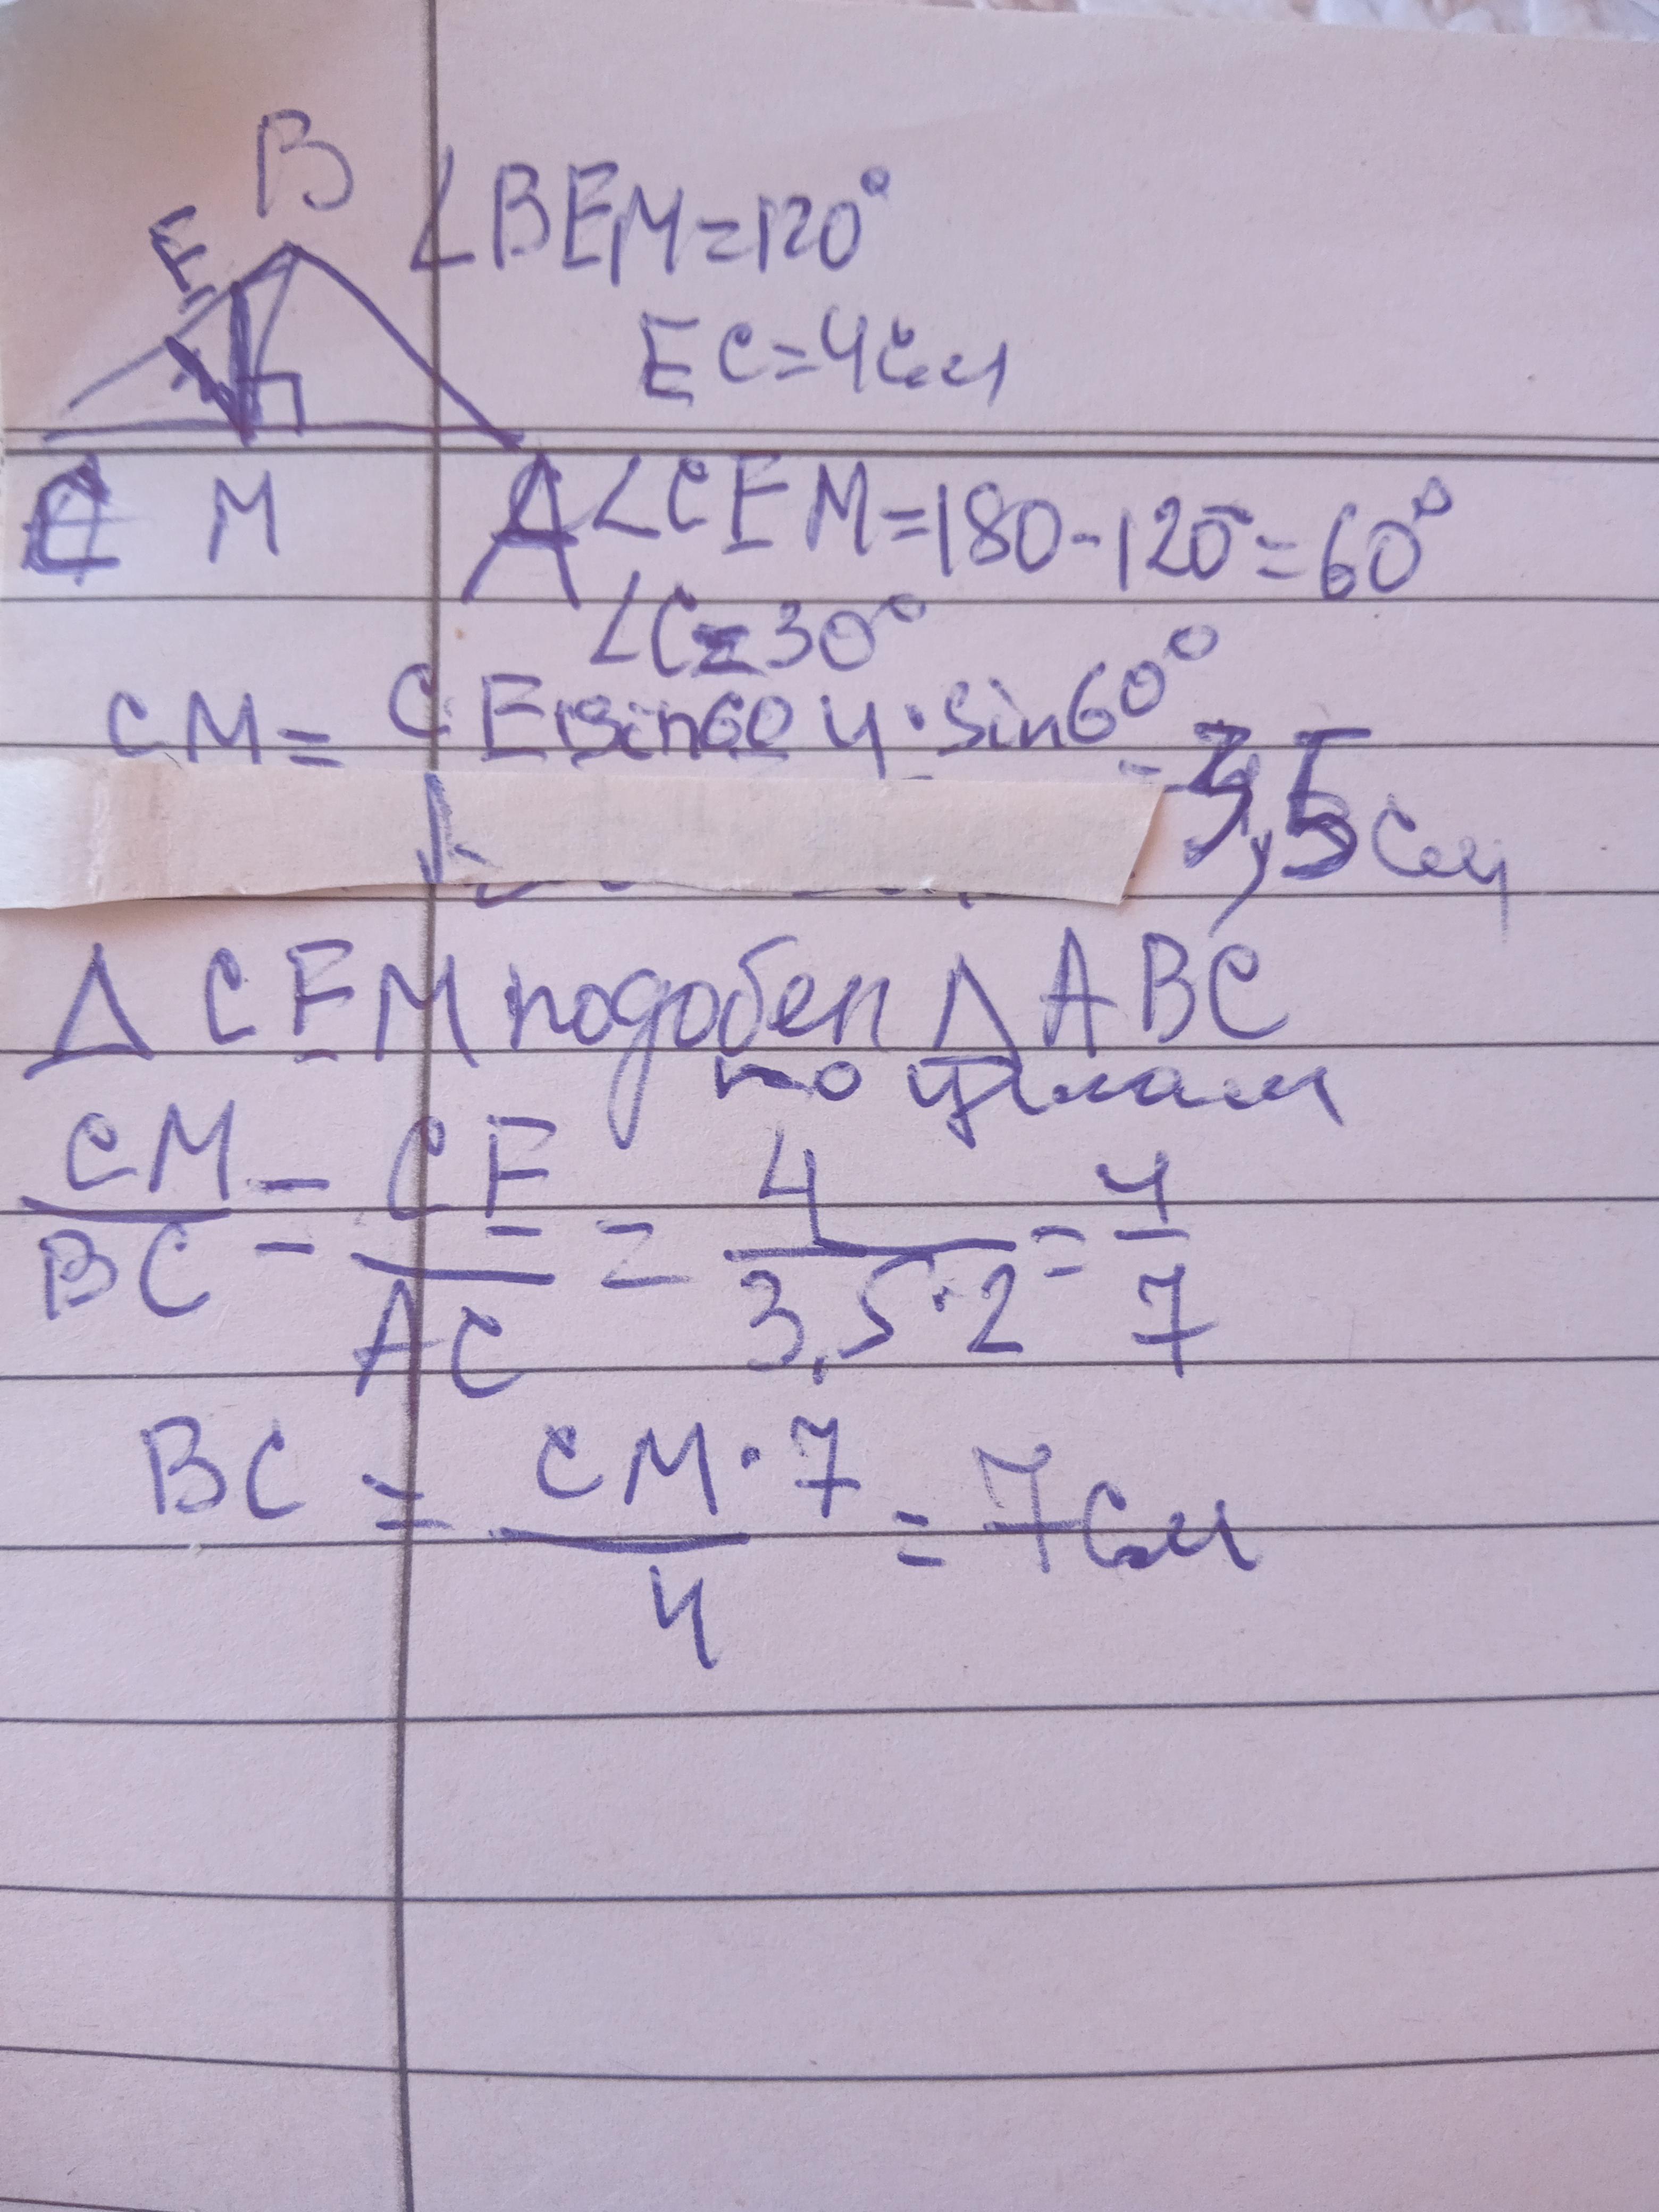 B
E
∠BEM=120°
EC=4см
C M A
∠CEM=180-120=60°
∠C=30°
CM= CE·sin60 4·sin60° = 3,5см
Δ CEM подобен Δ ABC
по углам
CM/BC = CE/AC = 4/3,5·2 = 4/7
BC = CM·7/4 = 7см